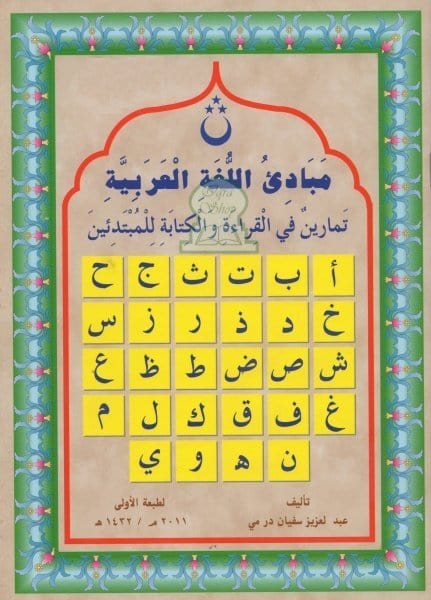 مَبَادِئُ اللُّغَةِ الْعَرَبِيَّةِ
تَمَارِينُ فِي الْقِرَاءَةِ وَالْكِتَابَةِ لِلْمُبْتَدِئِينَ
أ ب ت ث ج ح
خ د ذ ر ز س
ش ص ض ط ظ ع
غ ف ق ك ل م
ن ه و ي
تأليف
عبد لعزيز سفيان درمي
لطبعة الأولى
٢٠١١ م / ١٤٣٢ هـ